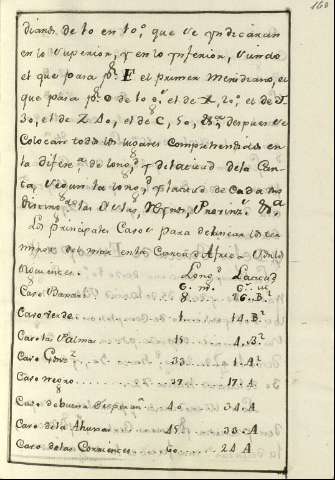 160
dianos de 10 en 10°, que se yndicaran
en lo superior, y en lo ynferior, siendo
el que pasa p.r E el primer Meridiano, el
que pasa p.r O de 10 g.s, el de Z, 20, el de
30, el de Z 40, el de C, 50, &.a despues se
Colocan todos los lugares Comprehendidos en
la difer.a de long.d y de latitud de la Car-
ta, segun la long.d y latitud de Cada uno
las Yslas, Reynos, Provin.s &.a
Los principales Cavos para delinear los ca-
minos de mar en la Carta d Africa son los
siguientes. Long.d Latitud
G. m. G. m.
Cavo 8 26. B.l
Cavo Verde 1 14. B.l
Cavo las Palmas 15 4. B.l
Cavo Gonz.z 33 1. A.l
Cavo negro 37 17. A
Cavo de buena Esperan.a 40 34. A
Cavo de la Ahujas 45 35. A
Cavo de las Corrientes 60 24 A